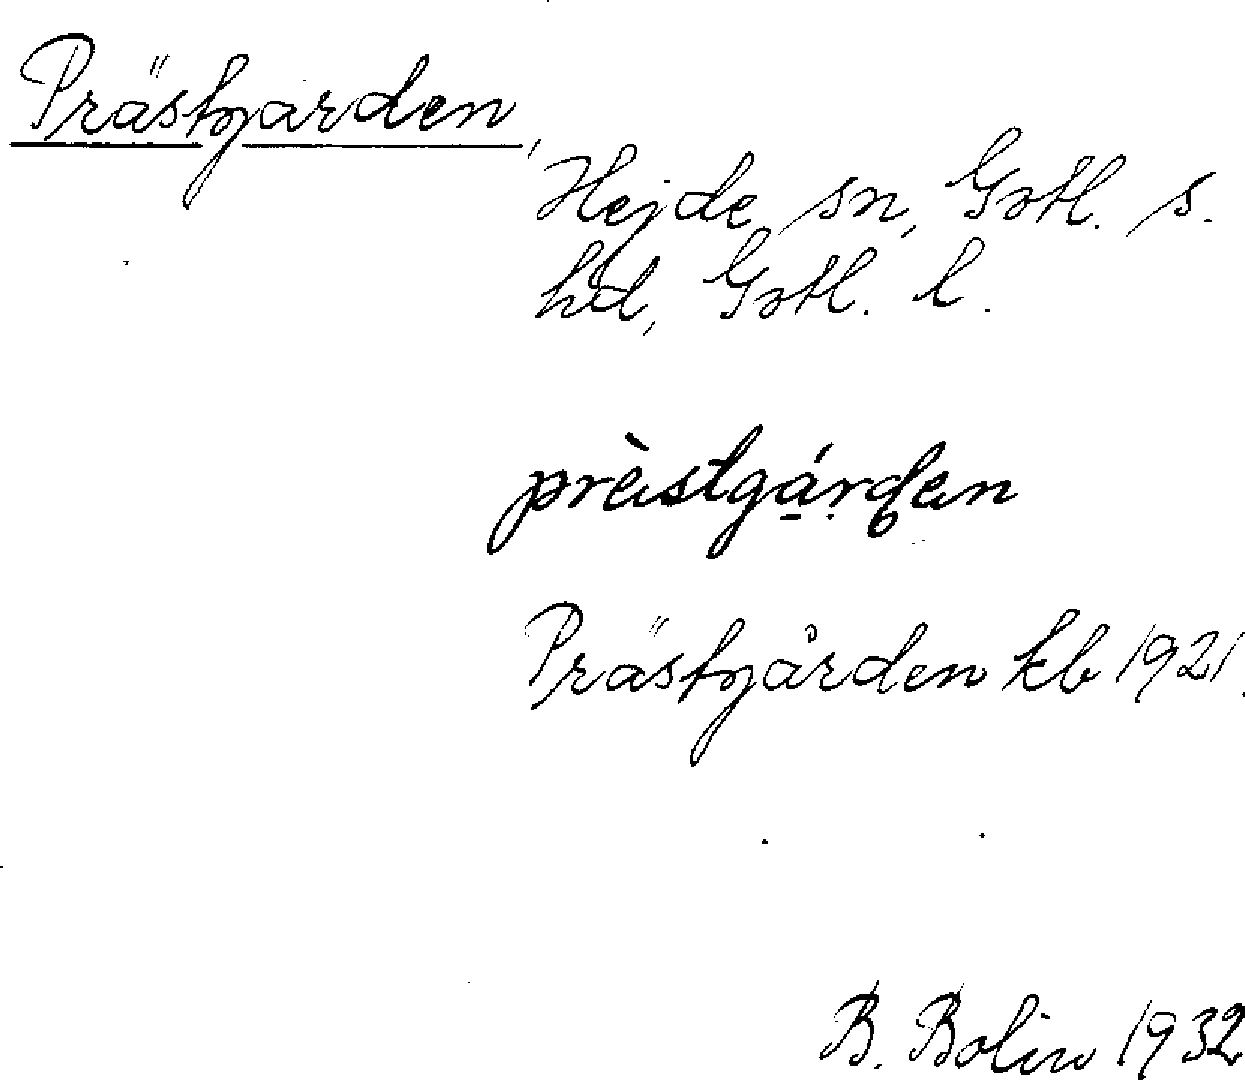 Prästgården,
Hejde sn, Gotl. s.
hd, Gotl. l.
prèstgárden
Prästgården kb 1921.
B. Bolin 1932